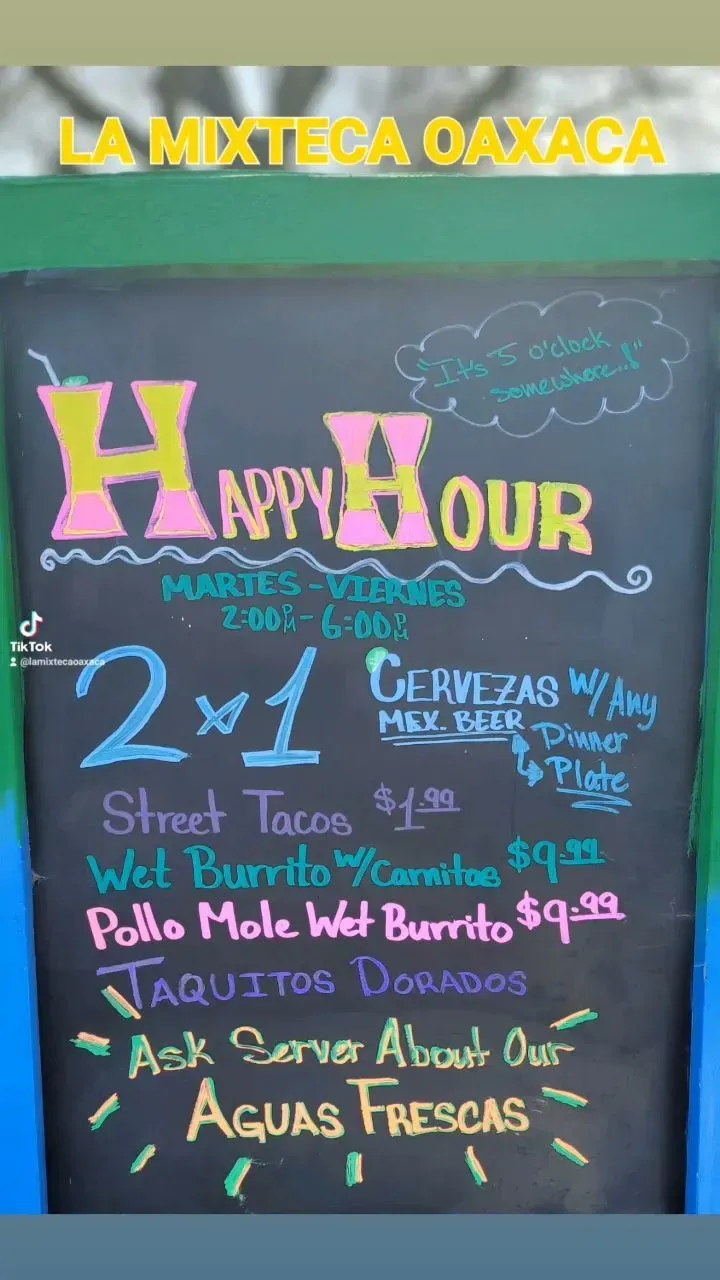 LA MIXTECA OAXACA
"It's 5 o'clock
somewhere..!"
HAPPY HOUR
MARTES - VIERNES
2:00PM - 6:00PM
TikTok
@lamixtecaoaxaca
2x1
CERVEZAS w/ Any
MEX. BEER
Dinner
Plate
Street Tacos $1.99
Wet Burrito w/Carnitas $9.99
Pollo Mole Wet Burrito $9.99
TAQUITOS DORADOS
Ask Server About Our
AGUAS FRESCAS